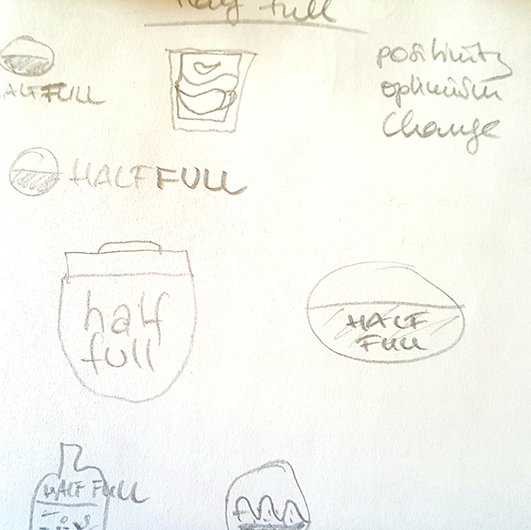 Half full
HALFFULL
positivity
optimism
Change
HALFFULL
half
full
HALF
FULL
HALF FULL